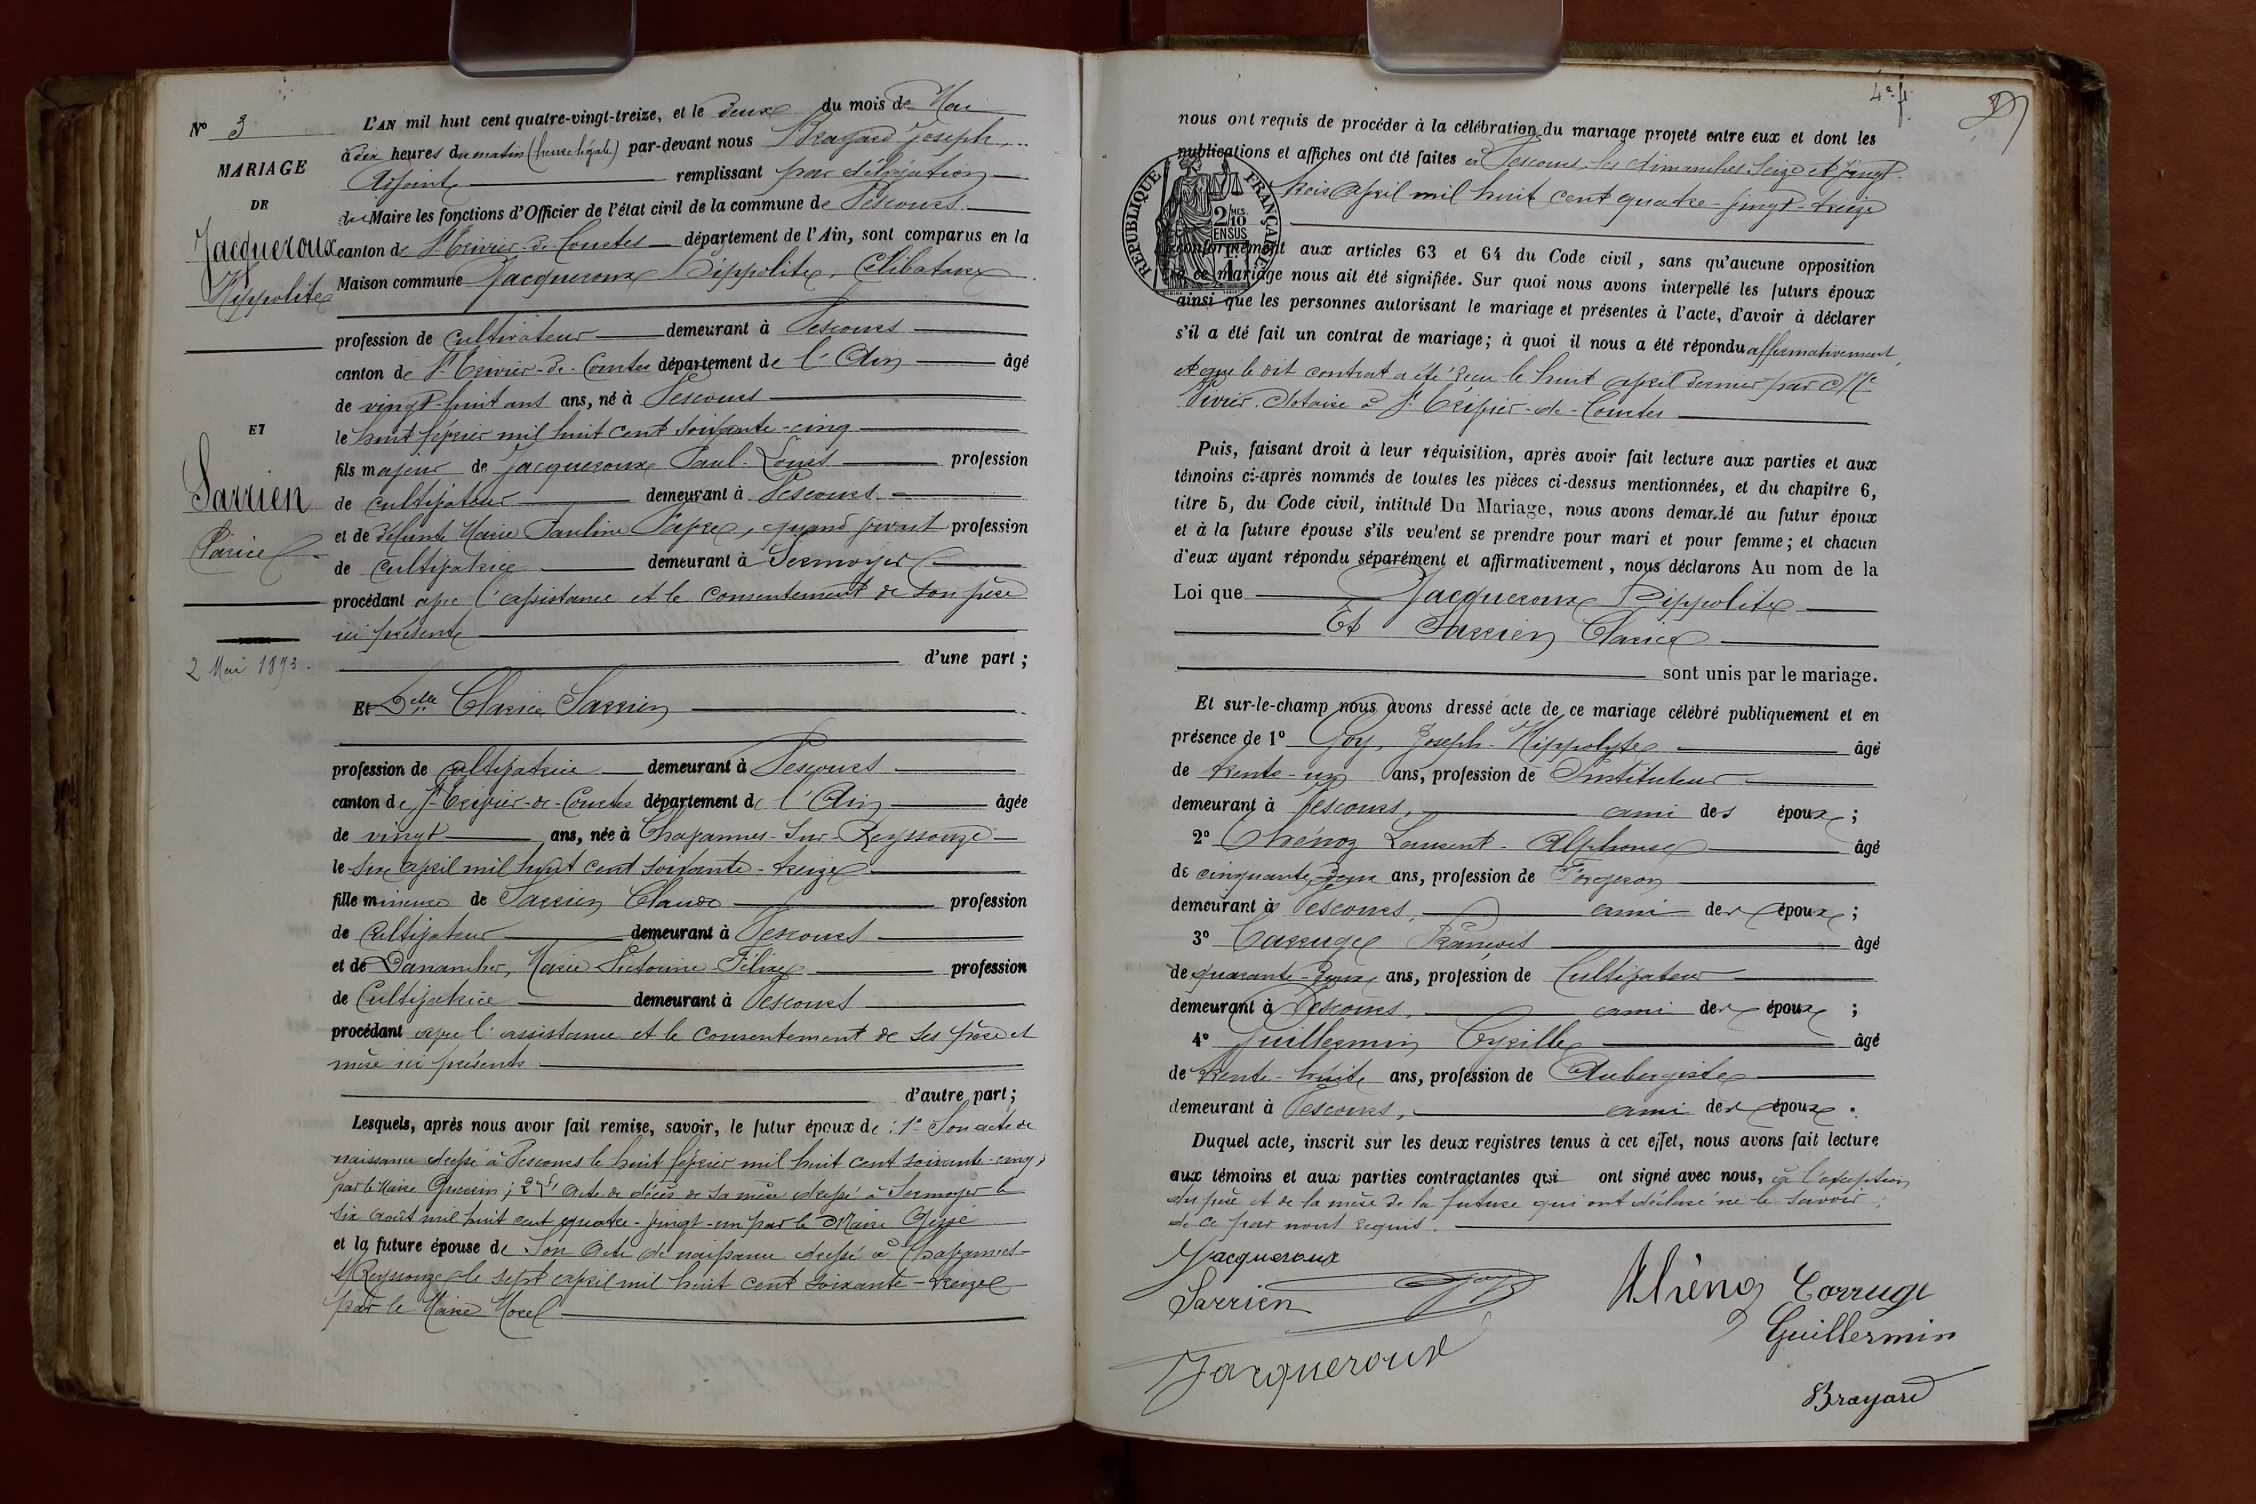 N° 3
MARIAGE
DE
Jacqueroux
Hippolite
ET
Sarrien
Clarice
2 Mai 1893.
L'AN mil huit cent quatre-vingt-treize, et le deux du mois de Mai
à dix heures du matin (heure légale) par-devant nous Brayard Joseph,
Adjoint remplissant par délégation
du Maire les fonctions d'Officier de l'état civil de la commune de Vescours
canton de St Trivier-de-Courtes département de l'Ain, sont comparus en la
Maison commune Jacqueroux Hippolite, Célibataire
profession de cultivateur demeurant à Vescours
canton de St Trivier-de-Courtes département de l'Ain âgé
de vingt-huit ans ans, né à Vescours
le huit février mil huit cent soixante-cinq
fils majeur de Jacqueroux Paul-Louis profession
de cultivateur demeurant à Vescours
et de défunte Marie Pauline, quand vivait profession
de cultivatrice demeurant à Sermoyer
procédant avec l'assistance et le consentement de son père
ici présent
d'une part ;
Et Delle Clarice Sarrien
profession de cultivatrice demeurant à Vescours
canton de St Trivier-de-Courtes département de l'Ain âgée
de vingt ans, née à Chavannes-sur-Reyssouze
le six avril mil huit cent soixante-treize
fille mineure de Sarrien Claude profession
de Cultivateur demeurant à Vescours
et de Danancher, Marie Victorine Félise profession
de Cultivatrice demeurant à Vescours
procédant avec l'assistance et le consentement de ses père et
mère ici présents
d'autre part ;
Lesquels, après nous avoir fait remise, savoir, le futur époux de : 1° Son acte de
naissance dressé à Vescours le huit février mil huit cent soixante-cinq,
par le Maire Guerin ; 2° l'acte de décès de sa mère dressé à Sermoyer le
six août mil huit cent quatre-vingt-un par le Maire
et la future épouse de Son acte de naissance dressé à Chavannes-
s/Reyssouze le sept avril mil huit cent soixante-treize
par le Maire Morel
4e f.
nous ont requis de procéder à la célébration du mariage projeté entre eux et dont les
publications et affiches ont été faites à Vescours les dimanches seize et vingt-
trois avril mil huit cent quatre-vingt-treize
RÉPUBLIQUE FRANÇAISE
2/10
EN SUS
conformément aux articles 63 et 64 du Code civil, sans qu'aucune opposition
à ce mariage nous ait été signifiée. Sur quoi nous avons interpellé les futurs époux
ainsi que les personnes autorisant le mariage et présentes à l'acte, d'avoir à déclarer
s'il a été fait un contrat de mariage ; à quoi il nous a été répondu affirmativement,
et que le dit contrat a été reçu le huit avril dernier par Me
Vivier, Notaire à St Trivier-de-Courtes
Puis, faisant droit à leur réquisition, après avoir fait lecture aux parties et aux
témoins ci-après nommés de toutes les pièces ci-dessus mentionnées, et du chapitre 6,
titre 5, du Code civil, intitulé Du Mariage, nous avons demandé au futur époux
et à la future épouse s'ils veulent se prendre pour mari et pour femme ; et chacun
d'eux ayant répondu séparément et affirmativement, nous déclarons Au nom de la
Loi que Jacqueroux Hippolite
Et Sarrien Clarice
sont unis par le mariage.
Et sur-le-champ nous avons dressé acte de ce mariage célébré publiquement et en
présence de 1° Goy, Joseph-Hippolyte âgé
de trente-un ans, profession de Instituteur
demeurant à Vescours, ami des époux ;
2° Thénoz Laurent-Alphonse âgé
de cinquante-deux ans, profession de Forgeron
demeurant à Vescours, ami des époux ;
3° Carruge François âgé
de quarante-deux ans, profession de Cultivateur
demeurant à Vescours, ami des époux ;
4° Guillermin Cyrille âgé
de trente-huit ans, profession de Aubergiste
demeurant à Vescours, ami des époux.
Duquel acte, inscrit sur les deux registres tenus à cet effet, nous avons fait lecture
aux témoins et aux parties contractantes qui ont signé avec nous, à l'exception
du père et de la mère de la future qui ont déclaré ne le savoir,
de ce par nous requis.
Jacqueroux
Goy
Thénoz Carruge
Sarrien
Guillermin
Jacqueroux
Brayard